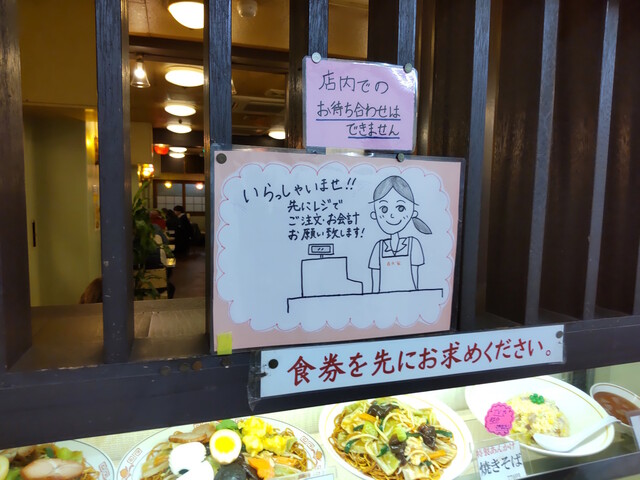 店内での
お待ち合わせは
できません
いらっしゃいませ!!
先にレジで
ご注文・お会計
お願い致します!
食券を先にお求めください。
焼きそば